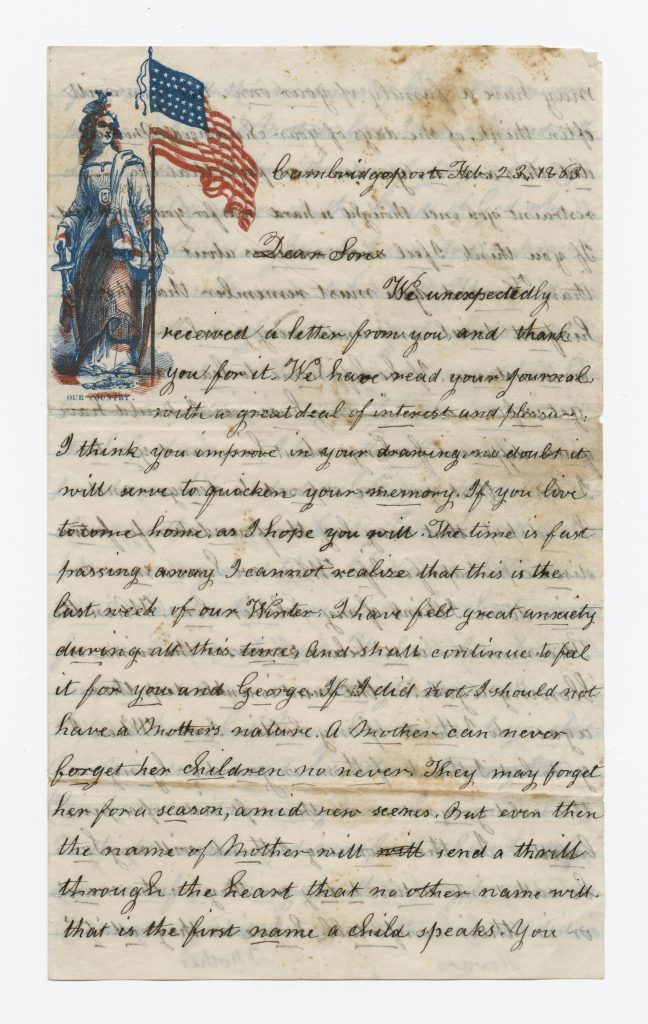 Cambridgeport Feb. 23, 1863
Dear Son
We unexpectedly
received a letter from you, and thank
you for it. We have read your Journal
with a great deal of interest and pleasure.
I think you improve in your drawing. no doubt it
will serve to quicken your memory. If you live
to come home, as I hope you will. The time is fast
passing away I cannot realise that this is the
last week of our Winter. I have felt great anxiety
during all this time, and shall continue to feel
it for you and George. If I did not I should not
have a Mothers nature. A Mother can never
forget her children no never. They may forget
her for a season, amid new scenes. But even then
the name of Mother will will send a thrill
through the heart that no other name will.
that is the first name a child speaks. You
OUR COUNTRY.